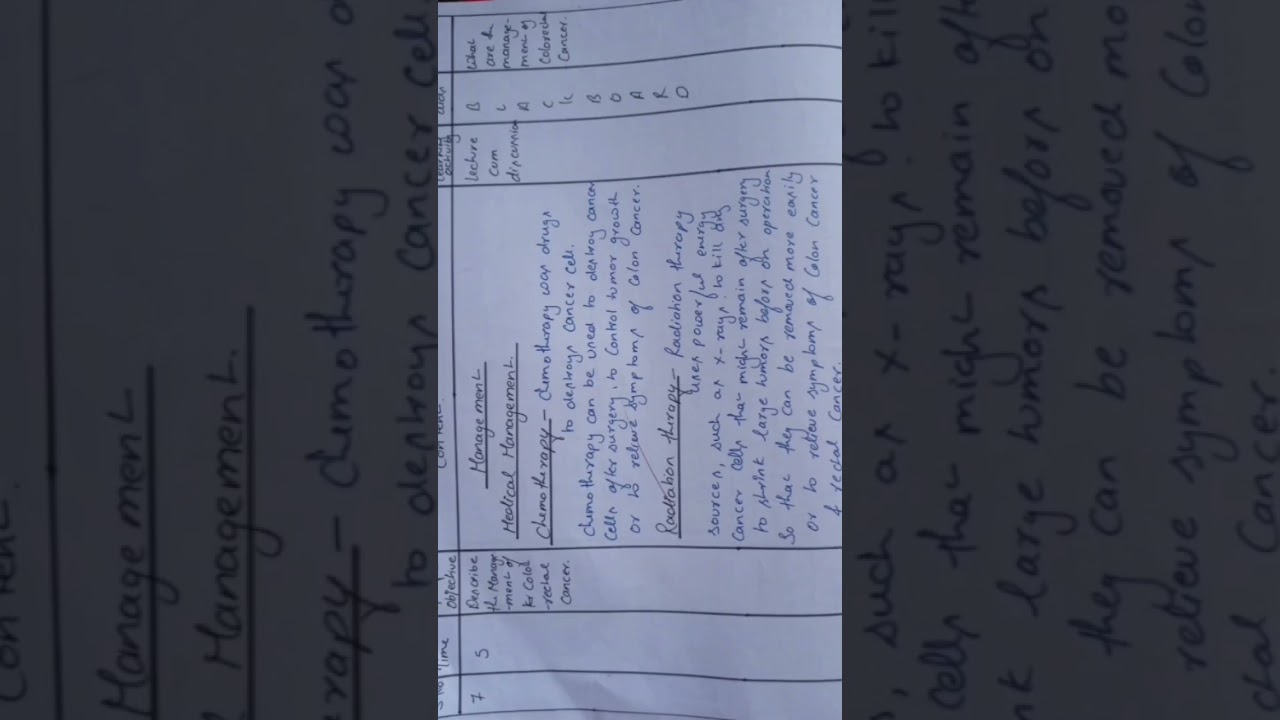 S.No
Time
Objective
Content
Learning activity
7
5
Describe
the Manage
-ment of
Colo
-rectal
Cancer.
Management
Medical Management.
Chemotherapy – Chemotherapy uses drugs
to destroys cancer cell.
Chemotherapy can be used to destroy cancer
cells after surgery, to control tumor growth
or to relieve symptoms of Colon Cancer.
Radiation therapy – Radiation therapy
uses powerful energy
sources, such as x-rays. to kill any
Cancer cells that might remain after surgery
to shrink large tumors before an operation
So that they can be removed more easily
or to relieve symptoms of Colon Cancer
& rectal Cancer.
Lecture
cum
discussion
B
L
A
C
K
B
O
A
R
D
What
are the
manage-
ment of
Colorectal
Cancer.